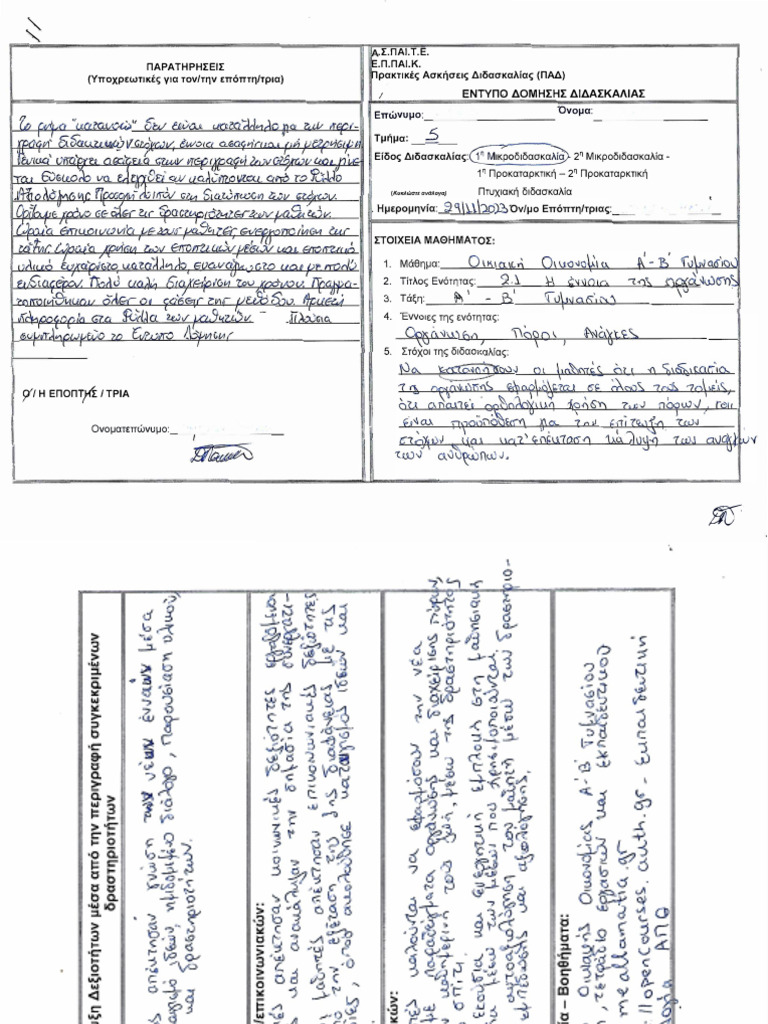 ΠΑΡΑΤΗΡΗΣΕΙΣ
(Υποχρεωτικές για τον/την επόπτη/τρια)
Το ρήμα "κατανοώ" δεν είναι κατάλληλο για την περι-
γραφή διδακτικών στόχων, έννοια ασαφής και μη μετρήσιμη
Γενικά υπάρχει ασάφεια στην περιγραφή των στόχων και γίνε-
ται δύσκολο να ελεγχθεί αν καλύπτονται από το Φύλλο
Αξιολόγησης Προσοχή λοιπόν στη διατύπωση των στόχων.
Ορίζουμε χρόνο σε όλες τις δραστηριότητες των μαθητών.
Ωραία επικοινωνία με τους μαθητές ενεργοποίηση της
τάξης Ωραία χρήση των εποπτικών μέσων και εποπτικό
υλικό ευχάριστο, κατάλληλο, ευανάγνωστο και με πολύ
ενδιαφέρον. Πολύ καλή διαχείριση του χρόνου. Πραγμα-
τοποιήθηκαν όλες οι φάσεις της μεθόδου. Αρκετή
πληροφορία στα Φύλλα των μαθητών - Πλούσια
συμπληρωμένο το Έντυπο Δόμησης
Ο/Η ΕΠΟΠΤΗΣ / ΤΡΙΑ
Ονοματεπώνυμο:
Α.Σ.ΠΑΙ.Τ.Ε.
Ε.Π.ΠΑΙ.Κ.
Πρακτικές Ασκήσεις Διδασκαλίας (ΠΑΔ)
ΕΝΤΥΠΟ ΔΟΜΗΣΗΣ ΔΙΔΑΣΚΑΛΙΑΣ
Επώνυμο: Όνομα:
Τμήμα: 5
Είδος Διδασκαλίας: 1η Μικροδιδασκαλία - 2η Μικροδιδασκαλία -
1η Προκαταρκτική – 2η Προκαταρκτική
(Κυκλώστε ανάλογα) Πτυχιακή διδασκαλία
Ημερομηνία: 29/11/2023 Ον/μο Επόπτη/τριας:
ΣΤΟΙΧΕΙΑ ΜΑΘΗΜΑΤΟΣ:
1. Μάθημα: Οικιακή Οικονομία Α'- Β' Γυμνασίου
2. Τίτλος Ενότητας: 2.1 Η έννοια της οργάνωσης
3. Τάξη: Α' - Β' Γυμνασίου
4. Έννοιες της ενότητας:
Οργάνωση, Πόροι, Ανάγκες
5. Στόχοι της διδασκαλίας:
Να κατανοήσουν οι μαθητές ότι η διαδικασία
της οργάνωσης εφαρμόζεται σε όλους τους τομείς,
ότι απαιτεί ορθολογική χρήση των πόρων, που
είναι προϋπόθεση για την επίτευξη των
στόχων και κατ' επέκταση κάλυψη των αναγκών
των ανθρώπων.
υξη Δεξιοτήτων μέσα από την περιγραφή συγκεκριμένων
δραστηριοτήτων
απέκτησαν γνώση των νέων εννοιών μέσα
ιδεών, ημιδομημένο διάλογο, παρουσίαση υλικού,
και δραστηριοτήτων.
/επικοινωνιακών:
απέκτησαν κοινωνικές δεξιότητες εργαζόμενοι
και ανακάλυψαν την σημασία της συνεργασί-
μαθητές απέκτησαν επικοινωνιακές δεξιότητες
την εξέταση της διαφάνειας με τις
, όπου ακολούθησε καταιγισμός ιδεών και
κών:
καλούνται να εφαρμόσουν την νέα
με παραδείγματα οργάνωσης και διαχείρισης πόρων,
καθημερινή τους ζωή, μέσω της δραστηριότητας
σπίτι.
εκούσια και ενεργητική εμπλοκή στη μαθησιακή
μέσω των μέσων που χρησιμοποιώνται
αυτοαξιολόγηση του μαθητή μέσω των δραστηριο-
εμπέδωσης και αξιολόγησης.
ία – Βοηθήματα:
Οικιακής Οικονομίας Α'- Β' Γυμνασίου
, τετράδιο εργασιών και εκπαιδευτικού
me allamatia.gr
//opencourses.auth.gr - Εκπαιδευτική
ΑΠΘ